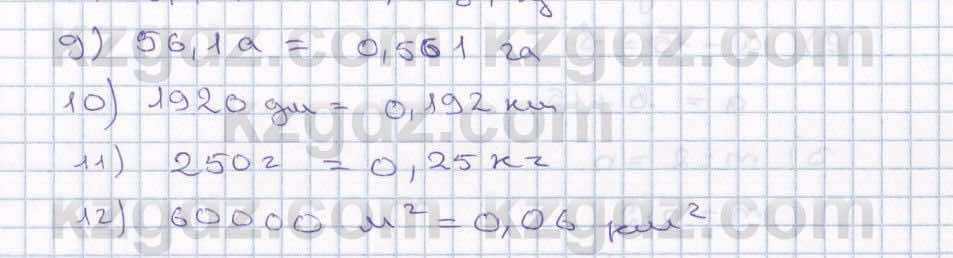 9) 56,1 а = 0,561 га
10) 1920 дм = 0,192 км
11) 250 г = 0,25 кг
12) 60000 м² = 0,06 км²
kzgdz.com kzgdz.com
kzgdz.com
kzgdz.com kzgdz.com